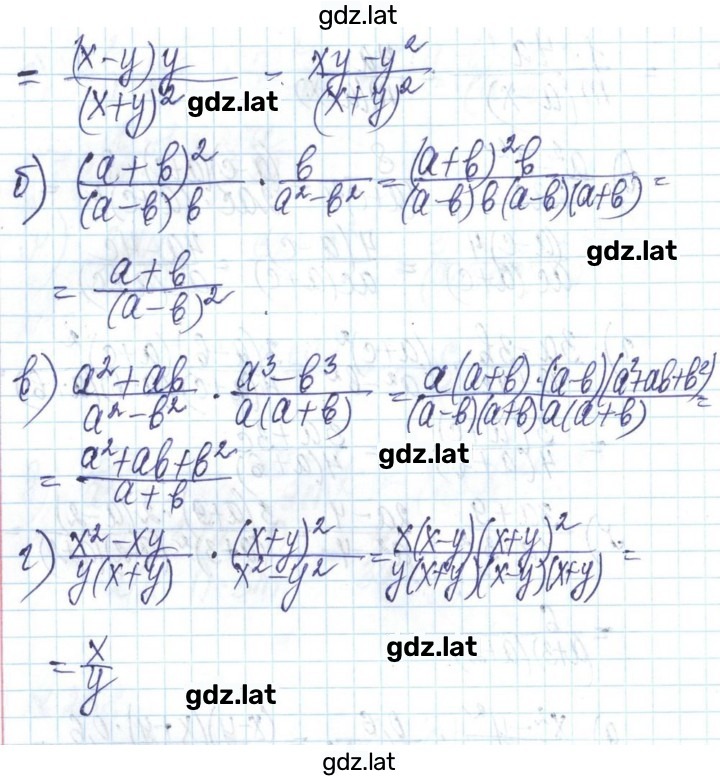 gdz.lat
= (x-y)y / (x+y)² = xy-y² / (x+y)²
gdz.lat
б) (a+b)² / (a-b)b · b / a²-b² = (a+b)²b / (a-b)b(a-b)(a+b) =
gdz.lat
= a+b / (a-b)²
в) a²+ab / a²-b² · a³-b³ / a(a+b) = a(a+b)·(a-b)(a²+ab+b²) / (a-b)(a+b)a(a+b) =
gdz.lat
= a²+ab+b² / a+b
г) x²-xy / y(x+y) · (x+y)² / x²-y² = x(x-y)(x+y)² / y(x+y)(x-y)(x+y) =
gdz.lat
= x / y
gdz.lat
gdz.lat